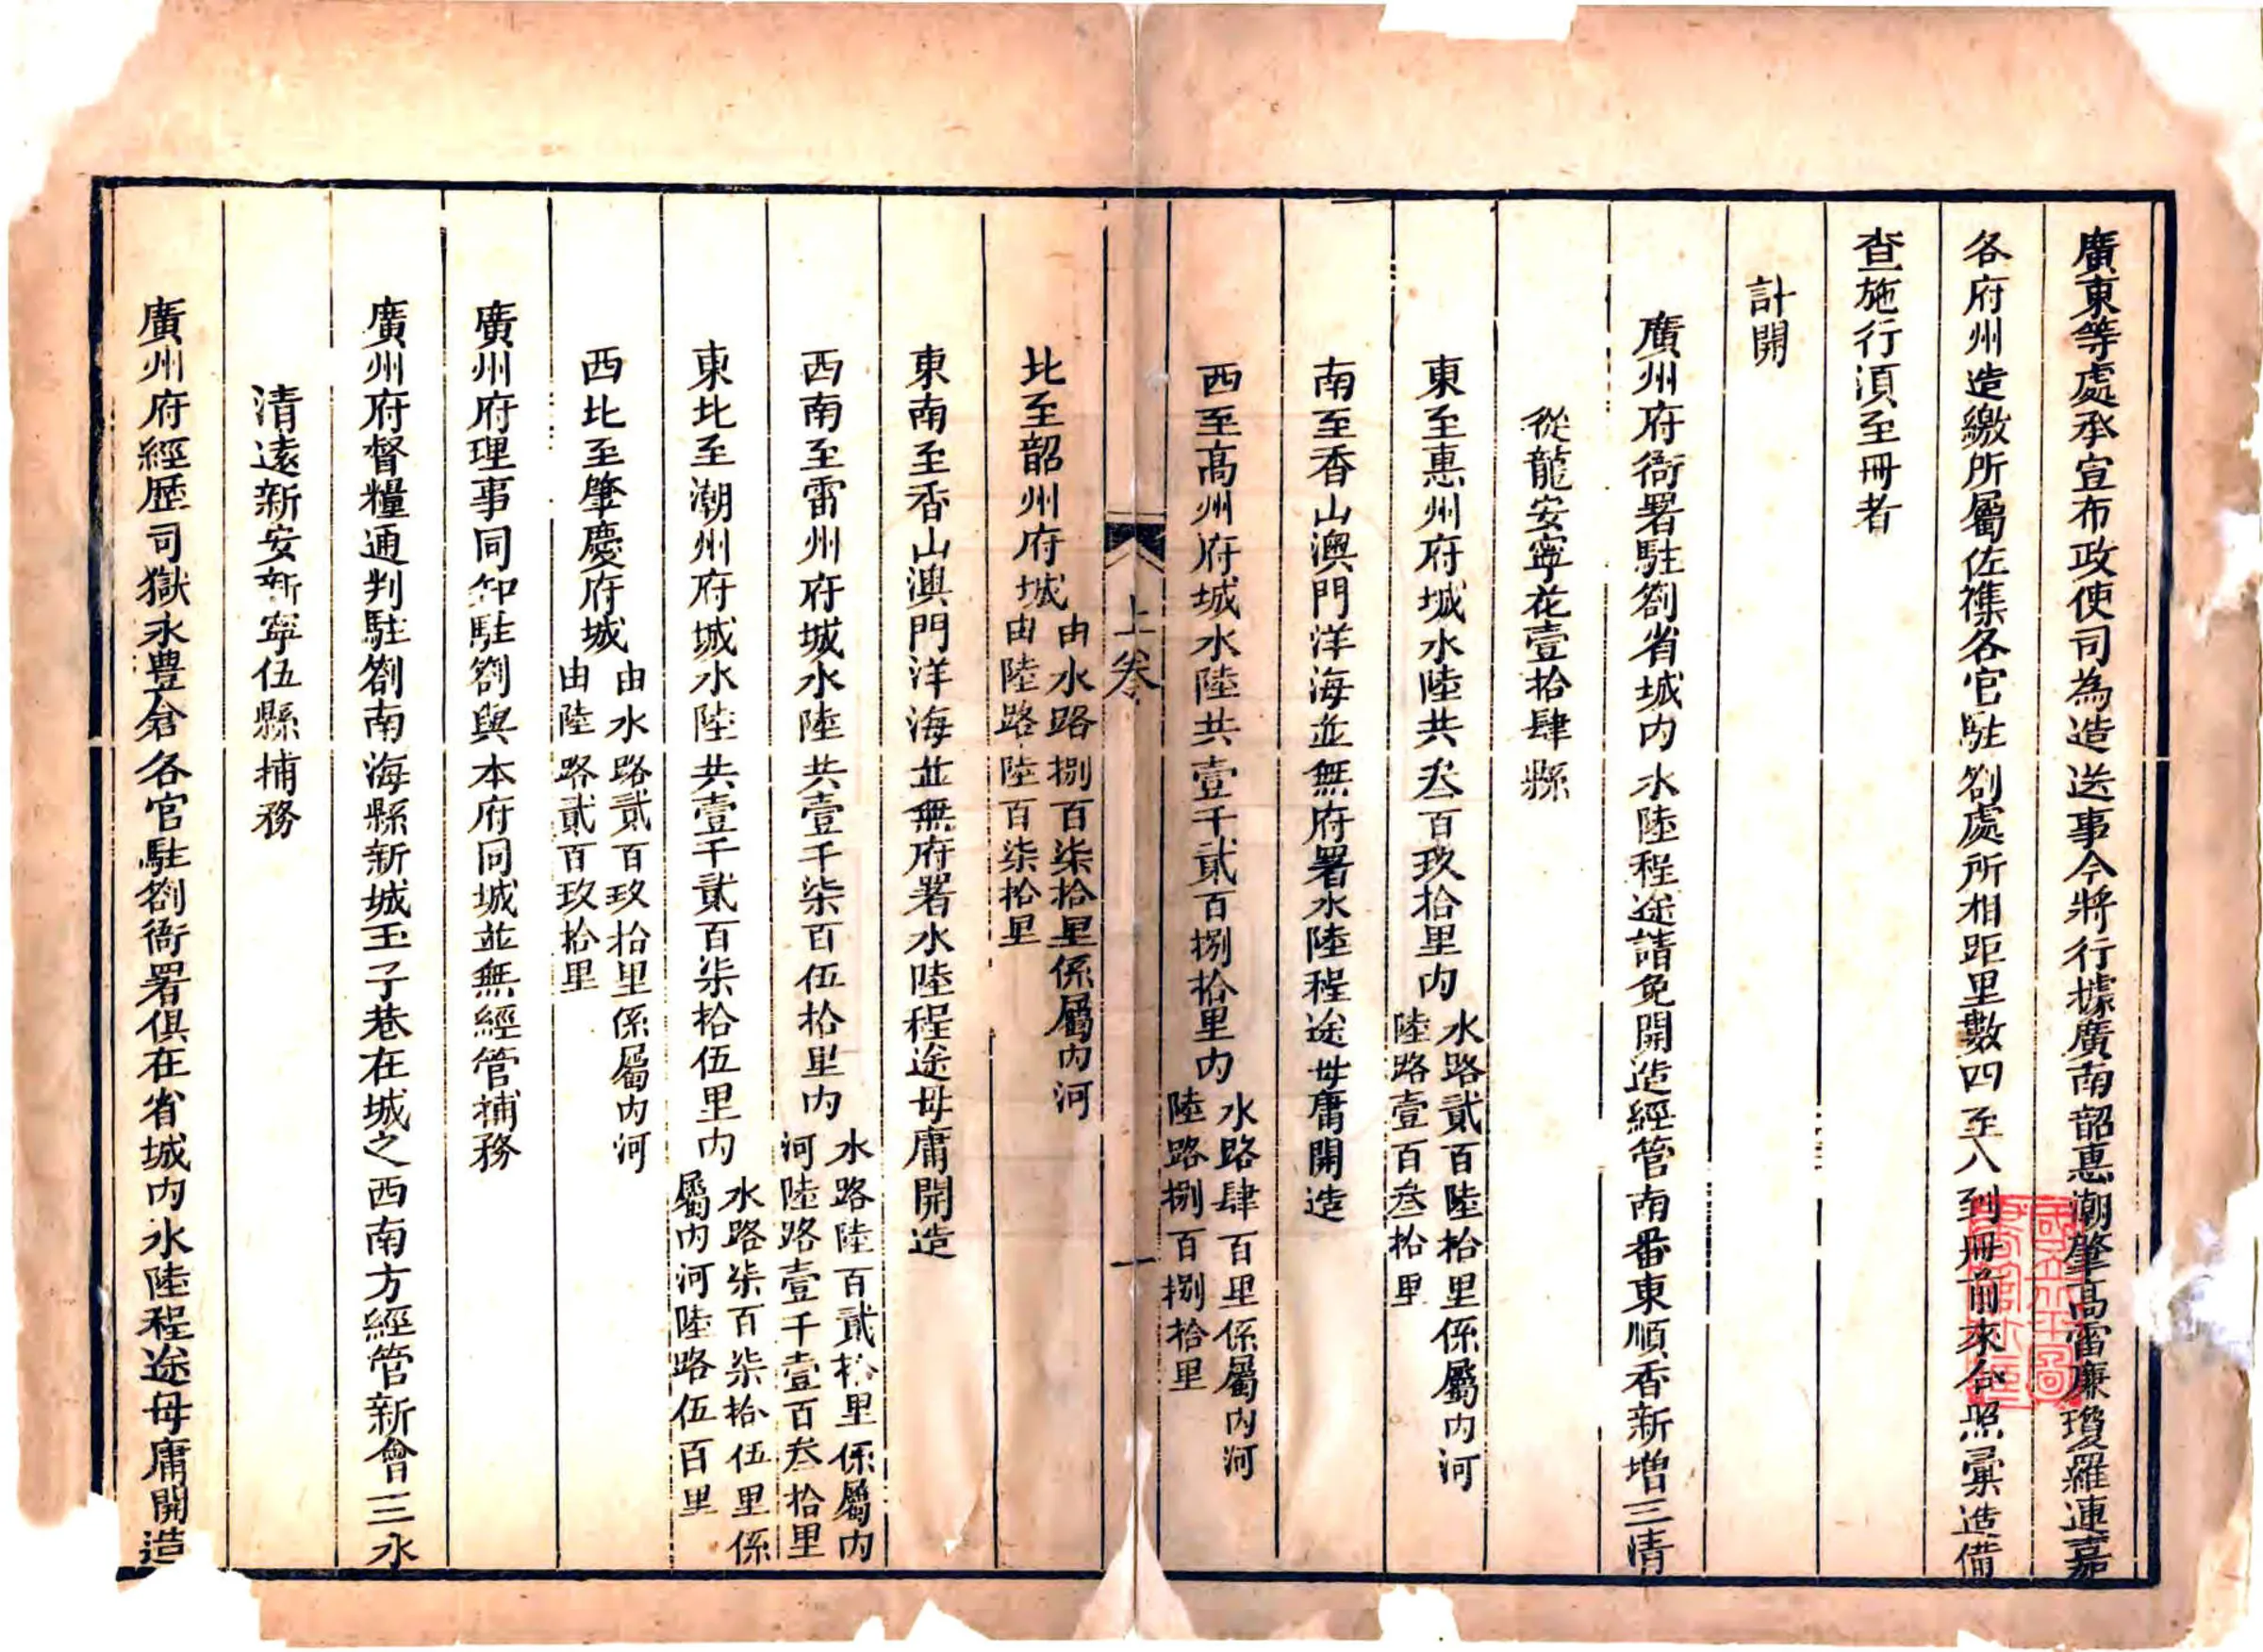 廣東等處承宣布政使司為造送事今將行據廣南韶惠潮肇高雷廉瓊羅連嘉
各府州造繳所屬佐襍各官駐劄處所相距里數四至八到冊前來合照彙造備
查施行須至冊者
計開
廣州府衙署駐劄省城內水陸程途請免開造經管南番東順香新增三清
從龍安寧花壹拾肆縣
東至惠州府城水陸共叁百玖拾里內
水路貳百陸拾里係屬內河
陸路壹百叁拾里
南至香山澳門洋海並無府署水陸程途毋庸開造
西至高州府城水陸共壹千貳百捌拾里內
水路肆百里係屬內河
陸路捌百捌拾里
上卷
一
北至韶州府城
由水路捌百柒拾里係屬內河
由陸路陸百柒拾里
東南至香山澳門洋海並無府署水陸程途毋庸開造
西南至雷州府城水陸共壹千柒百伍拾里內
水路陸百貳拾里係屬內
河陸路壹千壹百叁拾里
東北至潮州府城水陸共壹千貳百柒拾伍里內
水路柒百柒拾伍里係
屬內河陸路伍百里
西北至肇慶府城
由水路貳百玖拾里係屬內河
由陸路貳百玖拾里
廣州府理事同知駐劄與本府同城並無經管捕務
廣州府督糧通判駐劄南海縣新城玉子巷在城之西南方經管新會三水
清遠新安新寧伍縣捕務
廣州府經歷司獄永豊倉各官駐劄衙署俱在省城內水陸程途毋庸開造